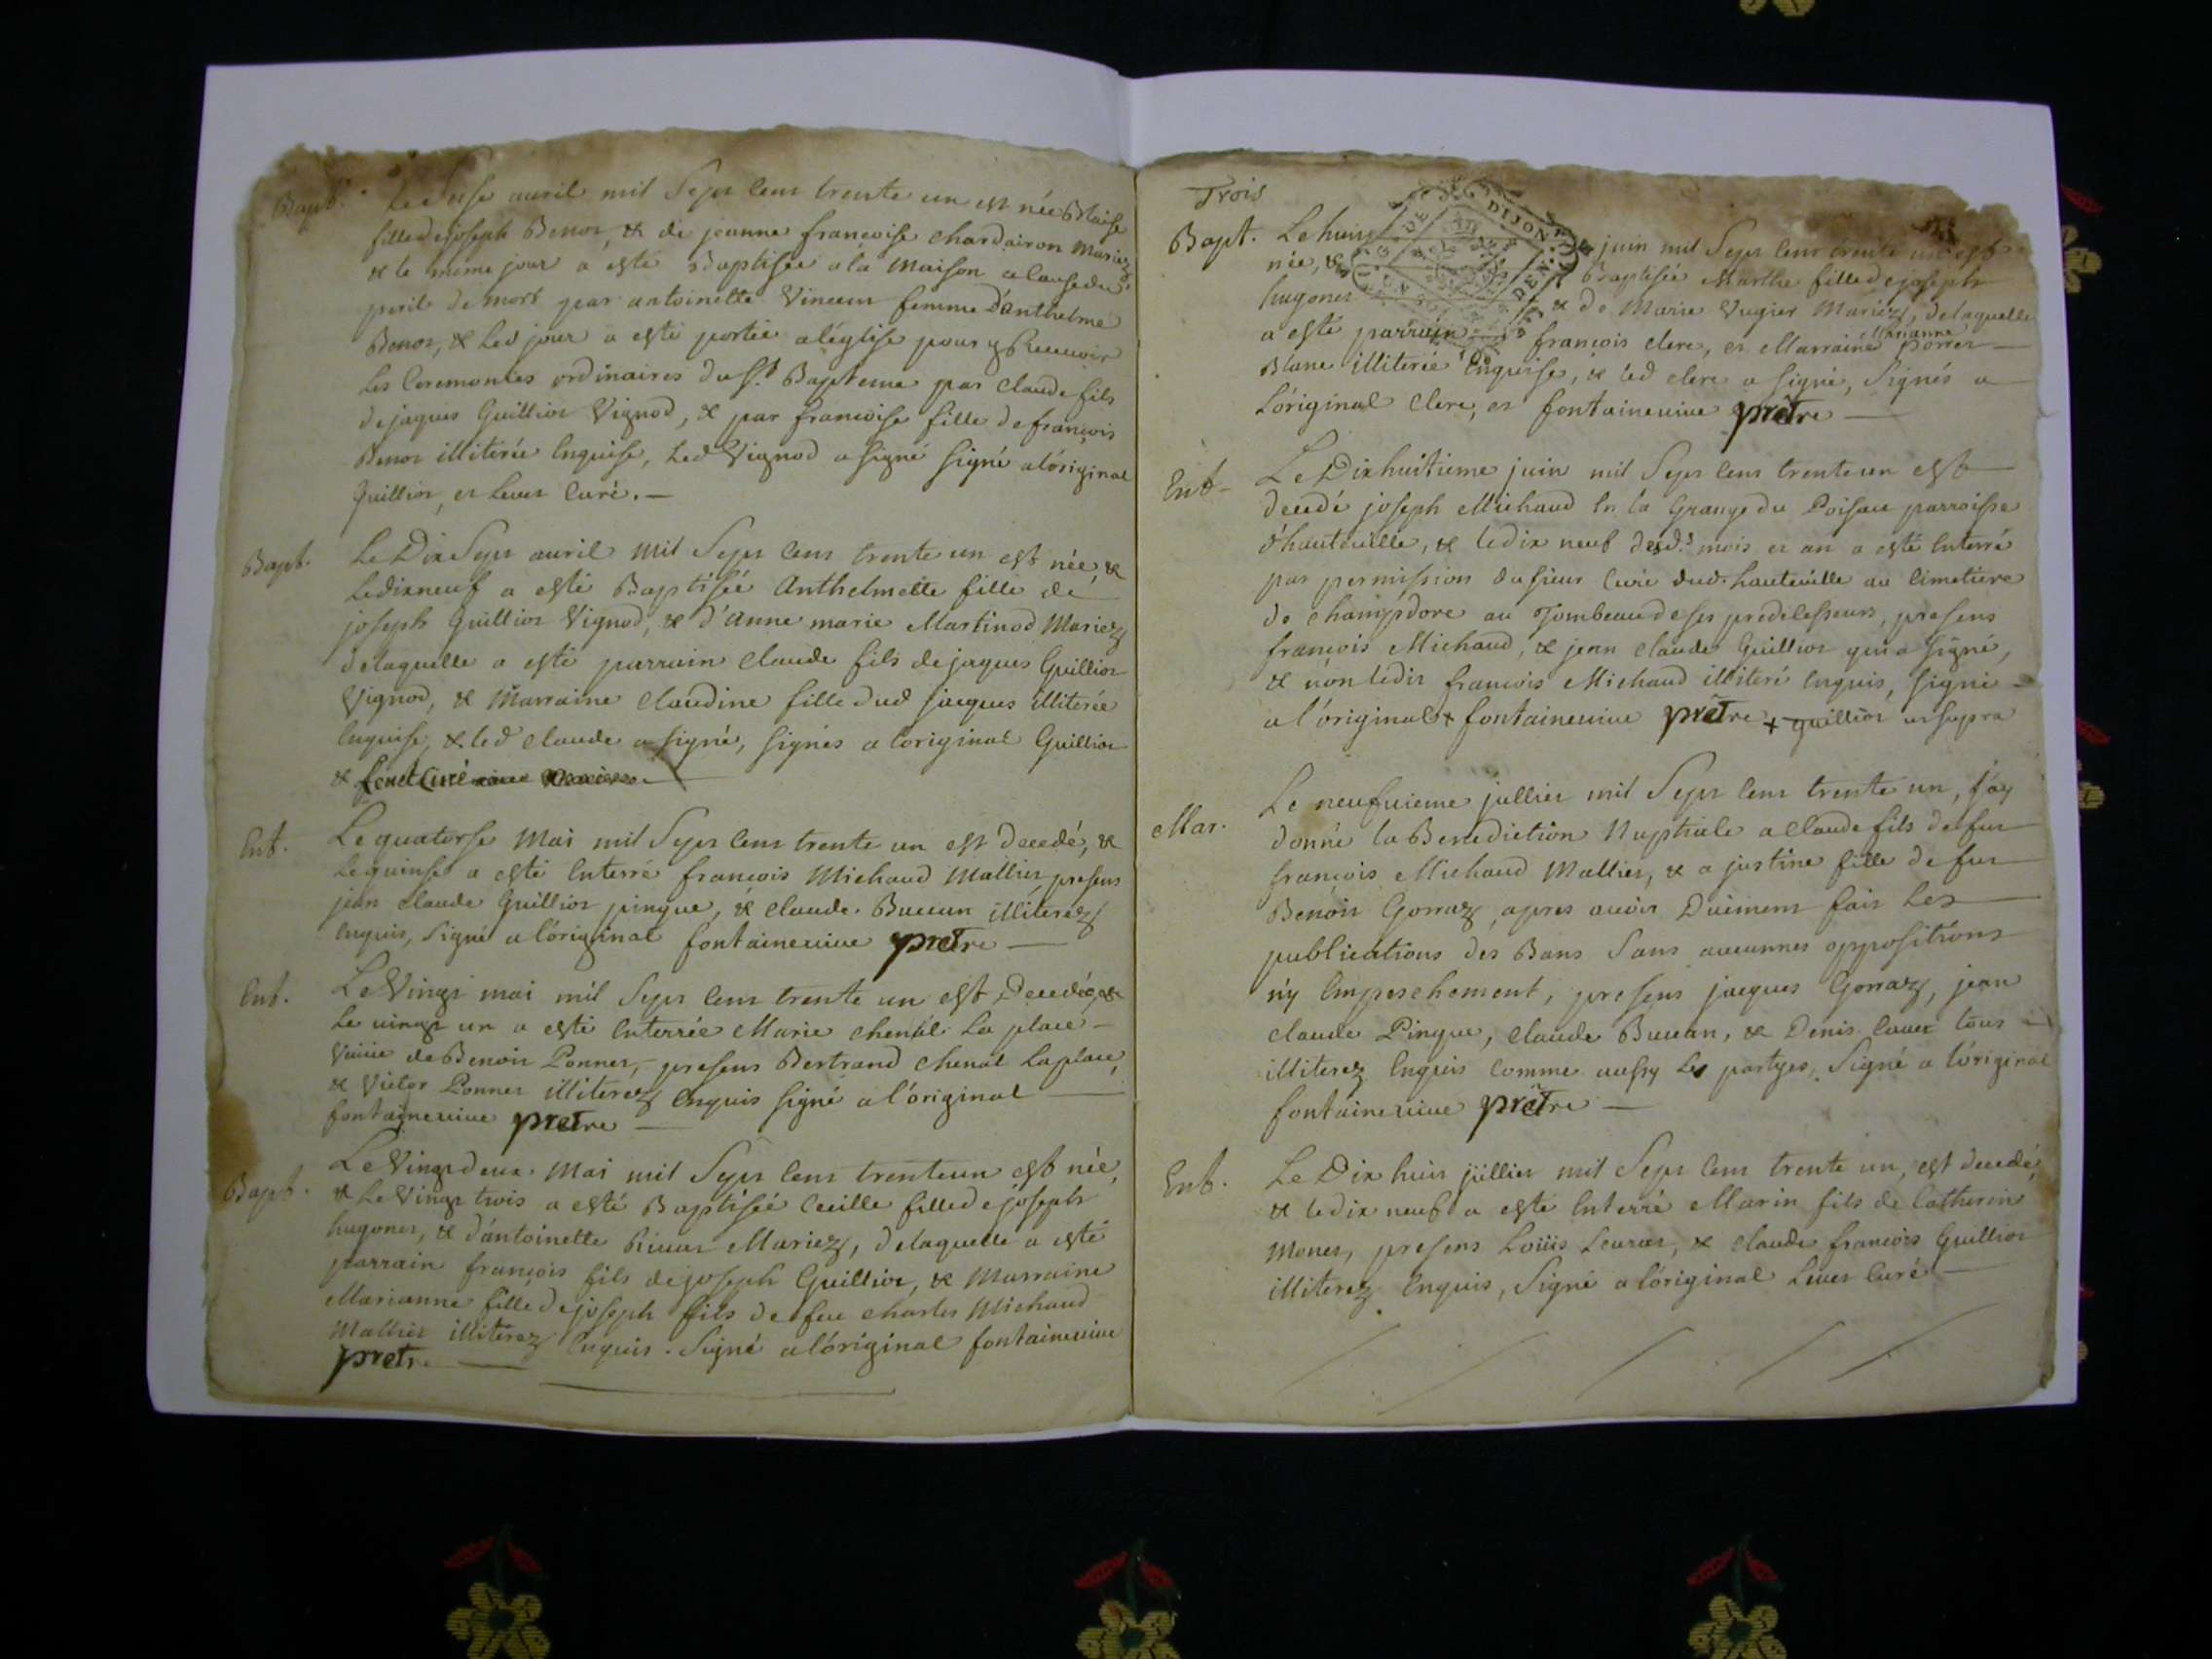 Bapt. Le Seise auril mil Sept Cent trente un est née Blaise
fille de joseph Benoz, & de jeanne francoise Chardairon Mariez
& le meme jour a esté Baptisée a la Maison a Cause du
peril de mort par antoinette Vincent femme d'anthelme
Benoz, & Led jour a esté portée a l'église pour y Receuoir
Les Ceremonies ordinaires du St Bapteme par Claude fils
de jaques Guillioz Vignod, & par francoise fille de francois
Benoz illiterée Enquise, Led Vignod a signé signé a l'original
Guillioz, et Curé. —
Bapt. Le Dix Sept auril mil Sept Cent trente un est née, &
Le dix neuf a esté Baptisée Anthelmette fille de
joseph Guillioz Vignod, & d'Anne marie Martinod Mariez
de laquelle a esté parrain Claude fils de jaques Guillioz
Vignod, & Marraine Claudine fille dud jacques illiterée
Enquise, & led Claude a signé, signés a l'original Guillioz
& Curé
Ent. Le quatorse Mai mil Sept Cent trente un est decedé, &
Le quinse a esté Enterré francois Michaud Mallier, presens
jean Claude Guillioz pingue, & Claude Buuan illiterez
Enquis, Signé a l'original fontaineuiue prêtre —
Ent. Le Vingt mai mil Sept Cent trente un est Decedée, &
Le uingt un a esté Enterrée Marie Chenal La place —
Veuue de Benoit Ponnet, presens Bertrand Chenal Laplace,
& Victor Ponnet illiterez Enquis signé a l'original —
fontaineuiue prêtre —
Bapt. Le Vingt deux Mai mil Sept Cent trente un est née,
& Le Vingt trois a esté Baptisée Cecille fille de joseph
hugonet, & d'antoinette Mariez, de laquelle a esté
parrain francois fils de joseph Guillioz, & Marraine
Marianne fille de joseph fils de feu Charles Michaud
Mallier illiterez Enquis. Signé a l'original fontaineuiue
prêtre —
Trois
DIJON
Bapt. Le huit juin mil Sept Cent trente un est
née, & Baptisée Marthe fille de joseph
hugonet & de Marie Vugier Mariez, de laquelle
Marianne
a esté parrain francois Clerc, et Marraine Porret —
Blanc illiterée Enquise, & led Clerc a signé, Signés a
L'original Clerc, et fontaineuiue prêtre —
Ent — Le Dix huitieme juin mil Sept Cent trente un est —
decedé joseph Michaud En la Grange du Poisau parroisse
d'hauteuille, & le dix neuf desd.s mois et an a esté Enterré
par permission du sieur Curé dud. hauteuille au Cimetiere
de Champdore au Tombeau de ses predecesseurs, presens
francois Michaud, & jean Claude Guillioz qui a signé,
& non ledit francois Michaud illiteré Enquis, signé —
a l'original + fontaineuiue prêtre + guillioz ut supra
Mar. Le neufuieme jullier mil Sept Cent trente un, j'ay
donné la Benediction Nuptiale a Claude fils de feu
francois Michaud Mallier, & a justine fille de feu
Benoit Gorraz, apres auoir Duement fait Les —
publications des Bans Sans aucunnes oppositions
n'y Empeschement, presens jacques Gorraz, jean
Claude Pingue, Claude Buuan, & Denis tous
illiterez Enquis Comme aussy Les partyes, Signé a l'original
fontaineuiue prêtre —
Ent. Le Dix huit jüllier mil Sept Cent trente un, est decedé,
& le dix neuf a esté Enterré Marin fils de Catherin
Monet, presens Loüis & Claude francois Guillioz
illiterez Enquis, Signé a l'original Curé —